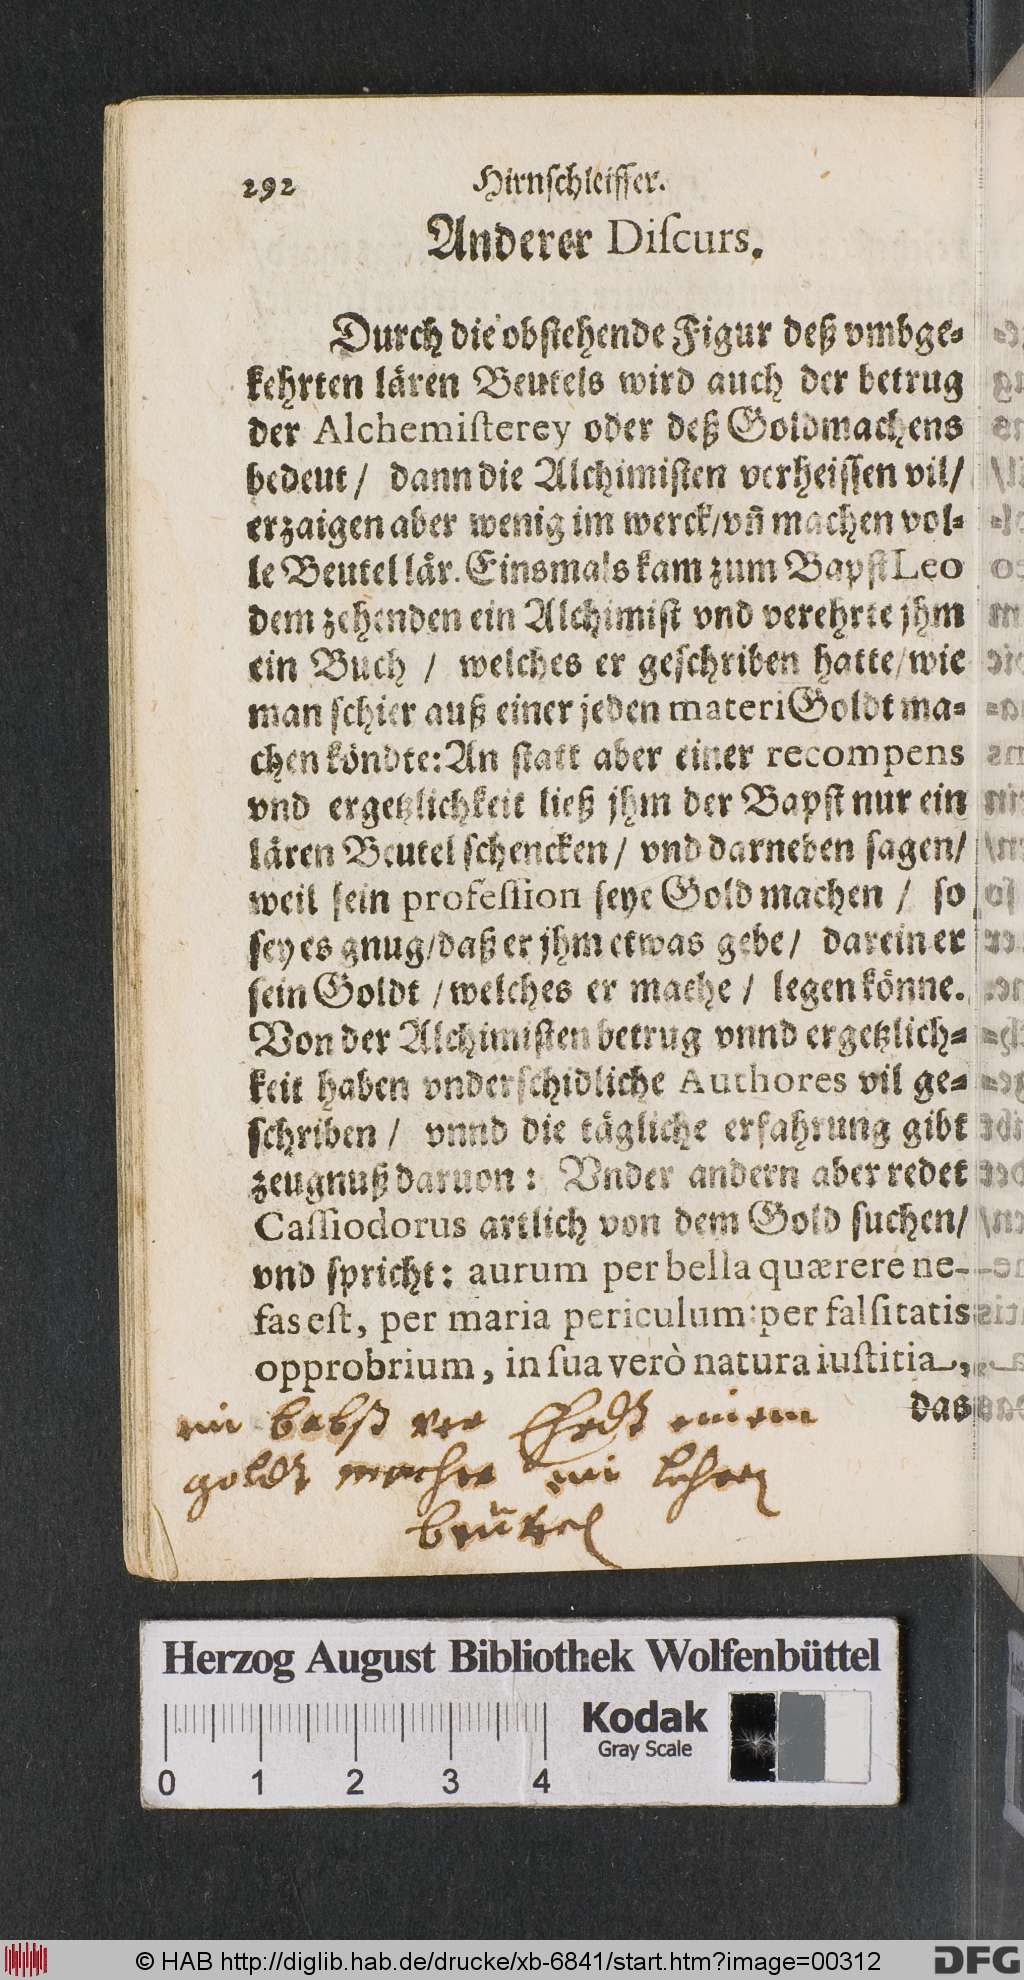 292 Hirnschleiffer.
Anderer Diſcurs.
Durch die obſtehende Figur deß vmbge-
kehrten lären Beutels wird auch der betrug
der Alchemiſterey oder deß Goldmachens
bedeut / dann die Alchimiſten verheiſſen vil/
erzaigen aber wenig im werck/vn̄ machen vol-
le Beutel lär. Einsmals kam zum Bapſt Leo
dem zehenden ein Alchimiſt vnd verehrte jhm
ein Buch / welches er geſchriben hatte/wie
man ſchier auß einer jeden materi Goldt ma-
chen köndte: An ſtatt aber einer recompens
vnd ergetzlichkeit ließ jhm der Bapſt nur ein
lären Beutel ſchencken / vnd darneben ſagen/
weil ſein profeſſion ſeye Gold machen / ſo
ſey es gnug/daß er jhm etwas gebe / darein er
ſein Goldt /welches er mache / legen könne.
Von der Alchimiſten betrug vnnd ergetzlich-
keit haben vnderſchidliche Authores vil ge-
ſchriben / vnnd die tägliche erfahrung gibt
zeugnuß daruon : Vnder andern aber redet
Caſſiodorus artlich von dem Gold ſuchen/
vnd ſpricht: aurum per bella quærere ne-
fas eſt, per maria periculum: per falſitatis
opprobrium, in ſua verò natura iuſtitia,
das
ein babſt ver Ehrdt einem
goldt macher ein lehren
beütel
Herzog August Bibliothek Wolfenbüttel
Kodak
Gray Scale
0 1 2 3 4
© HAB http://diglib.hab.de/drucke/xb-6841/start.htm?image=00312
DFG